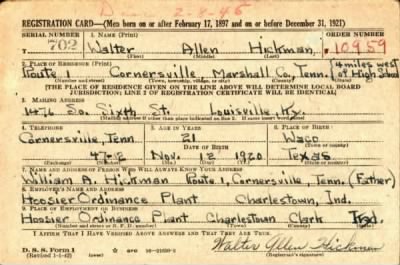 REGISTRATION CARD—(Men born on or after February 17, 1897 and on or before December 31, 1921)
SERIAL NUMBER 1. NAME (Print) ORDER NUMBER
702 Walter Allen Hickman 10959
(First) (Middle) (Last)
2. PLACE OF RESIDENCE (Print) (4 miles west
Route 1 Cornersville, Marshall Co., Tenn. of High School
(Number and street) (Town, township, village, or city) (County) (State)
[THE PLACE OF RESIDENCE GIVEN ON THE LINE ABOVE WILL DETERMINE LOCAL BOARD
JURISDICTION; LINE 2 OF REGISTRATION CERTIFICATE WILL BE IDENTICAL]
3. MAILING ADDRESS
1476 So. Sixth St. Louisville, Ky.
[Mailing address if other than place indicated on line 2. If same insert word same]
4. TELEPHONE 5. AGE IN YEARS 6. PLACE OF BIRTH
Cornersville, Tenn 21 Waco
DATE OF BIRTH (Town or county)
Nov. 12 1920 Texas
(Exchange) (Number) (Mo.) (Day) (Yr.) (State or country)
7. NAME AND ADDRESS OF PERSON WHO WILL ALWAYS KNOW YOUR ADDRESS
William B. Hickman Route 1, Cornersville, Tenn. (Father)
8. EMPLOYER'S NAME AND ADDRESS
Hoosier Ordinance Plant Charlestown, Ind.
9. PLACE OF EMPLOYMENT OR BUSINESS
Hoosier Ordinance Plant Charlestown Clark Ind.
(Number and street or R. F. D. number) (Town) (County) (State)
I AFFIRM THAT I HAVE VERIFIED ABOVE ANSWERS AND THAT THEY ARE TRUE.
D. S. S. Form 1
(Revised 1-1-42) (over) Walter Allen Hickman